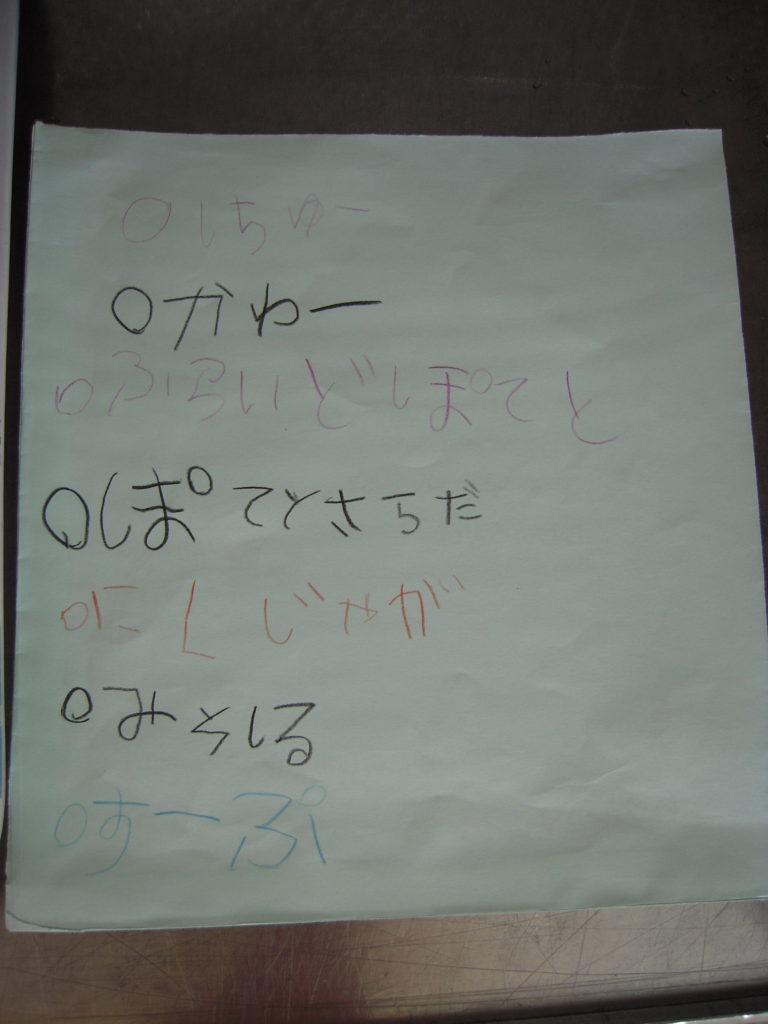 ○しちゅー
○かわー
○ふらいどぽてと
○ぽてとさらだ
○にくじゃが
○みそしる
○すーぷ